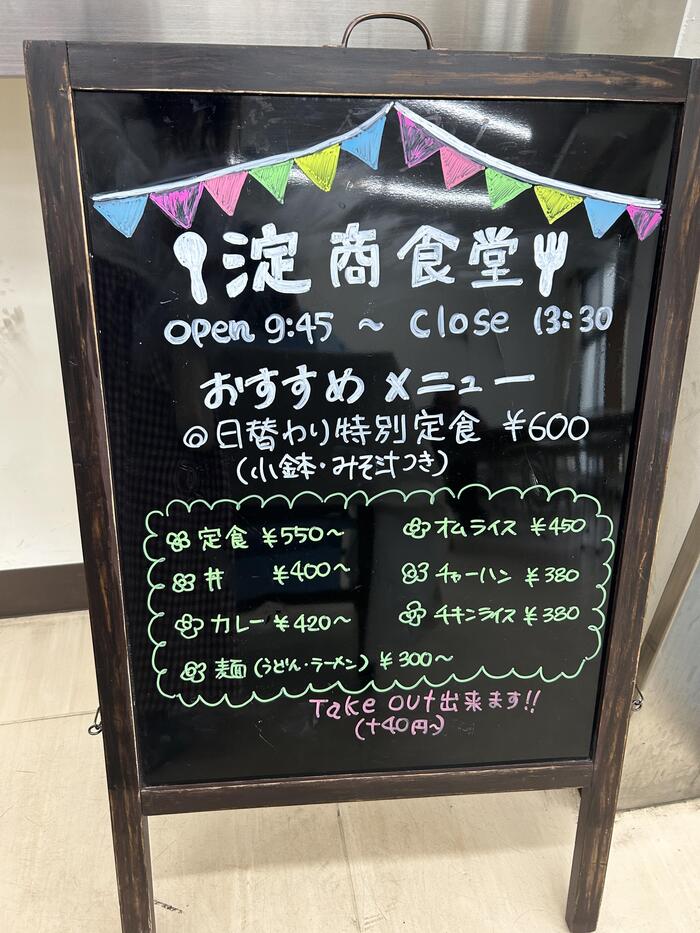 淀商食堂
open 9:45 ~ close 13:30
おすすめ メニュー
◎日替わり特別定食 ¥600
(小鉢・みそ汁つき)
定食 ¥550~
丼 ¥400~
カレー ¥420~
麺(うどん・ラーメン) ¥300~
オムライス ¥450
チャーハン ¥380
チキンライス ¥380
Take out出来ます!!
(+40円~)